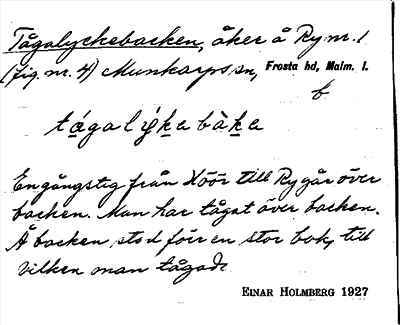 Tågalyckebacken, åker å Ry nr. 1
(fig. nr. 4) Munkarps sn, Frosta hd, Malm. l.
b
tågalýkebàke
En gångstig från Höör till Ry går över
backen. Man har tågat över backen.
Å backen stod förr en stor bok, till
vilken man tågade
EINAR HOLMBERG 1927